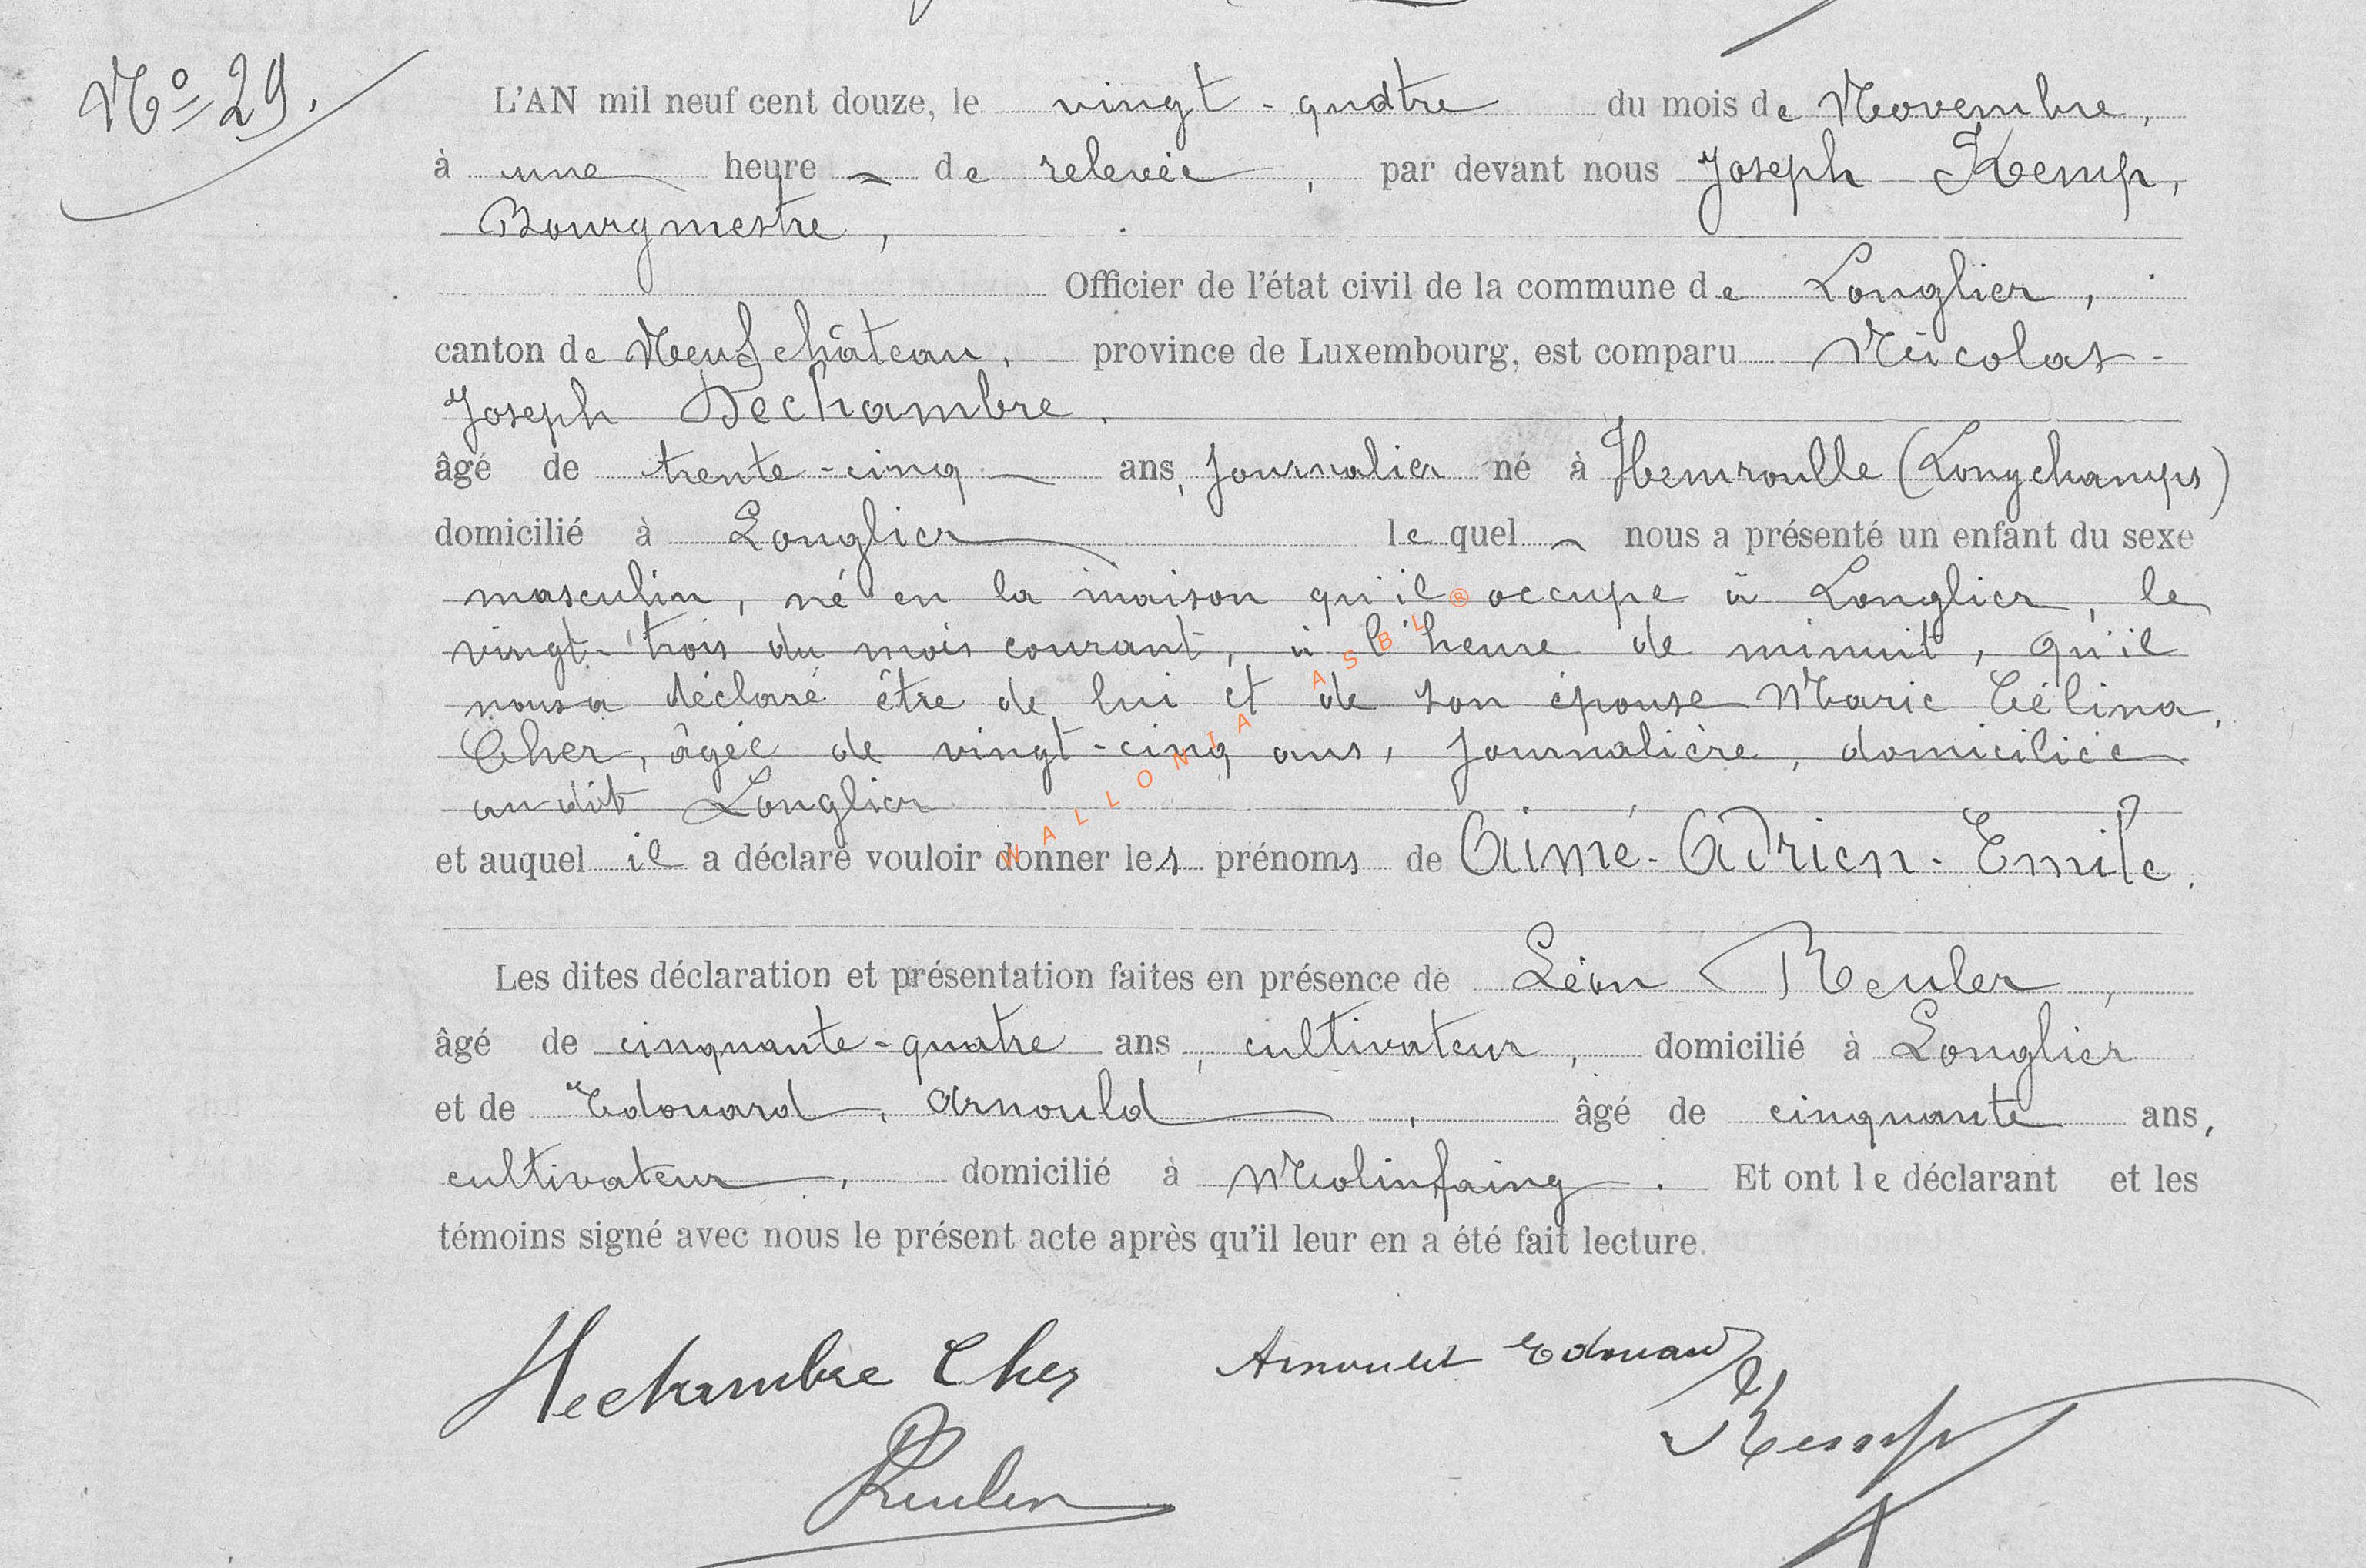 N° 29.
L'AN mil neuf cent douze, le vingt-quatre du mois de Novembre,
à une heure de relevée, par devant nous Joseph Kemp,
Bourgmestre,
Officier de l'état civil de la commune de Longlier,
canton de Neufchâteau, province de Luxembourg, est comparu Nicolas-
Joseph Dechambre.
âgé de trente-cinq ans, journalier né à Hemroulle (Longchamps)
domicilié à Longlier lequel nous a présenté un enfant du sexe
masculin, né en la maison qu'il occupe à Longlier, le
vingt-trois du mois courant, à l'heure de minuit, qu'il
nous a déclaré être de lui et de son épouse Marie Célina,
Cher, âgée de vingt-cinq ans, journalière, domiciliée
au dit Longlier
et auquel il a déclaré vouloir donner les prénoms de Aimé-Adrien-Emile.
Les dites déclaration et présentation faites en présence de Léon Reuler,
âgé de cinquante-quatre ans, cultivateur, domicilié à Longlier
et de Edouard, Arnould, âgé de cinquante ans,
cultivateur, domicilié à Molinfaing. Et ont le déclarant et les
témoins signé avec nous le présent acte après qu'il leur en a été fait lecture.
Dechambre Cher Arnould Edouard
Kemp
Reuler
WALLONIA ASBL ®